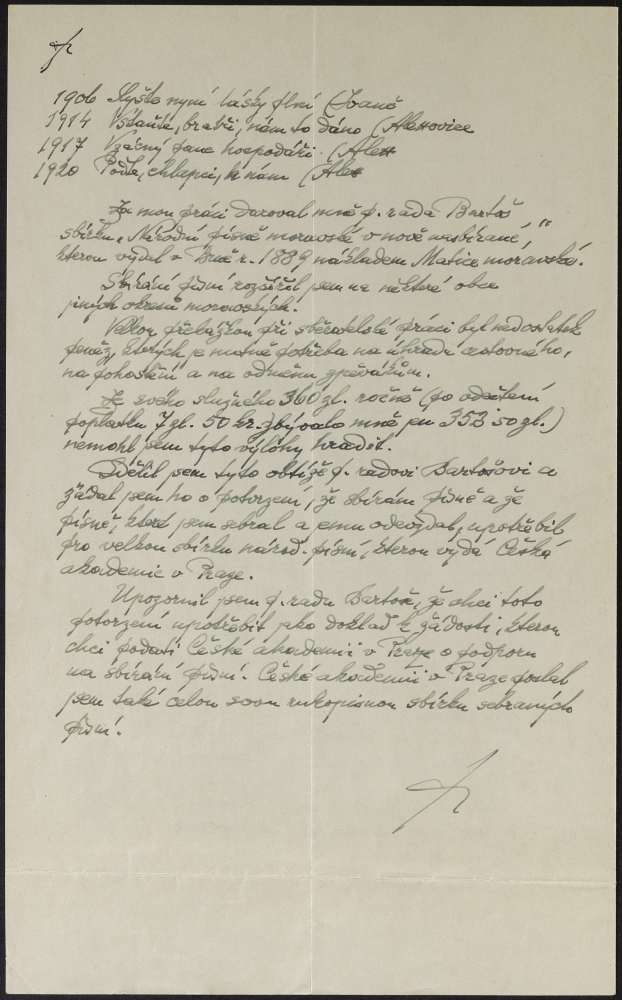 1906 Slyšte nyní lásky plní (Ivaně
1914 Vstaňte, bratři, nám to dáno (Alexovice
1917 Vzácný pane hospodáři. (Alex
1920 Poďte, chlapci, k nám (Alex
Za mou práci daroval mně p. rada Bartoš
sbírku „Národní písně moravské v nově nasbírané,"
kterou vydal v Brně r. 1889 nákladem Matice moravské.
Sbírání písní rozšířil jsem na některé obce
jiných okresů moravských.
Velkou překážkou při sběratelské práci byl nedostatek
peněz, kterých je nutně potřeba na úhradu cestovného,
na pohoštění a na odměnu zpěvákům.
Ze svého služného 360 zl. ročně (po odečtení
poplatku 7 zl. 50 kr. zbývalo mně jen 352·50 zl.)
nemohl jsem tyto výlohy hradit.
Sdělil jsem tyto obtíže p. radovi Bartošovi a
žádal jsem ho o potvrzení, že sbírám písně a že
písně, které jsem sebral a jemu odevzdal, upotřebil
pro velkou sbírku národ. písní, kterou vydá Česká
akademie v Praze.
Upozornil jsem p. radu Bartoše, že chci toto
potvrzení upotřebit jako doklad k žádosti, kterou
chci podati České akademii v Praze o podporu
na sbírání písní. České akademii v Praze poslal
jsem také celou svou rukopisnou sbírku sebraných
písní.